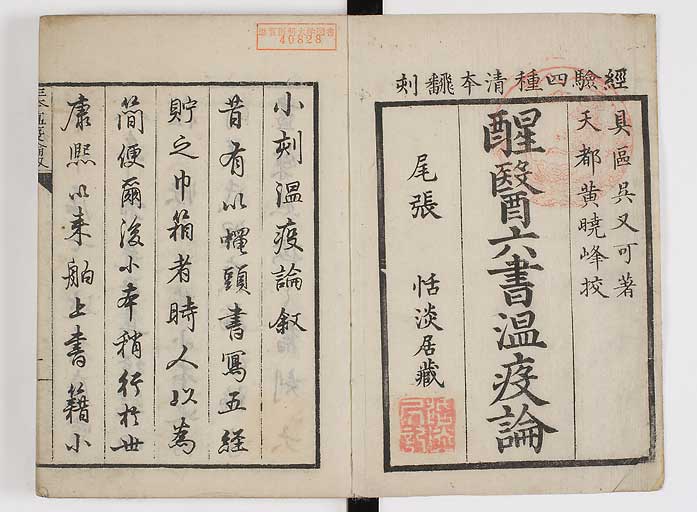 經驗四種清本翻刻
具區吳又可著
天都黄曉峰挍
醒醫六書溫疫論
尾張 恬淡居藏
滋賀医科大学図書
40828
小刻溫疫論叙
昔有以蠅頭書寫五經
貯之巾箱者時人以爲
簡便爾後小本稍行於世
康熙以来舶上書籍小